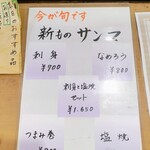 今が旬です
新もの サンマ
刺身
¥700
なめろう
¥800
刺身と塩焼
セット
¥1.450
つまみ巻
塩焼
のおすすめ品